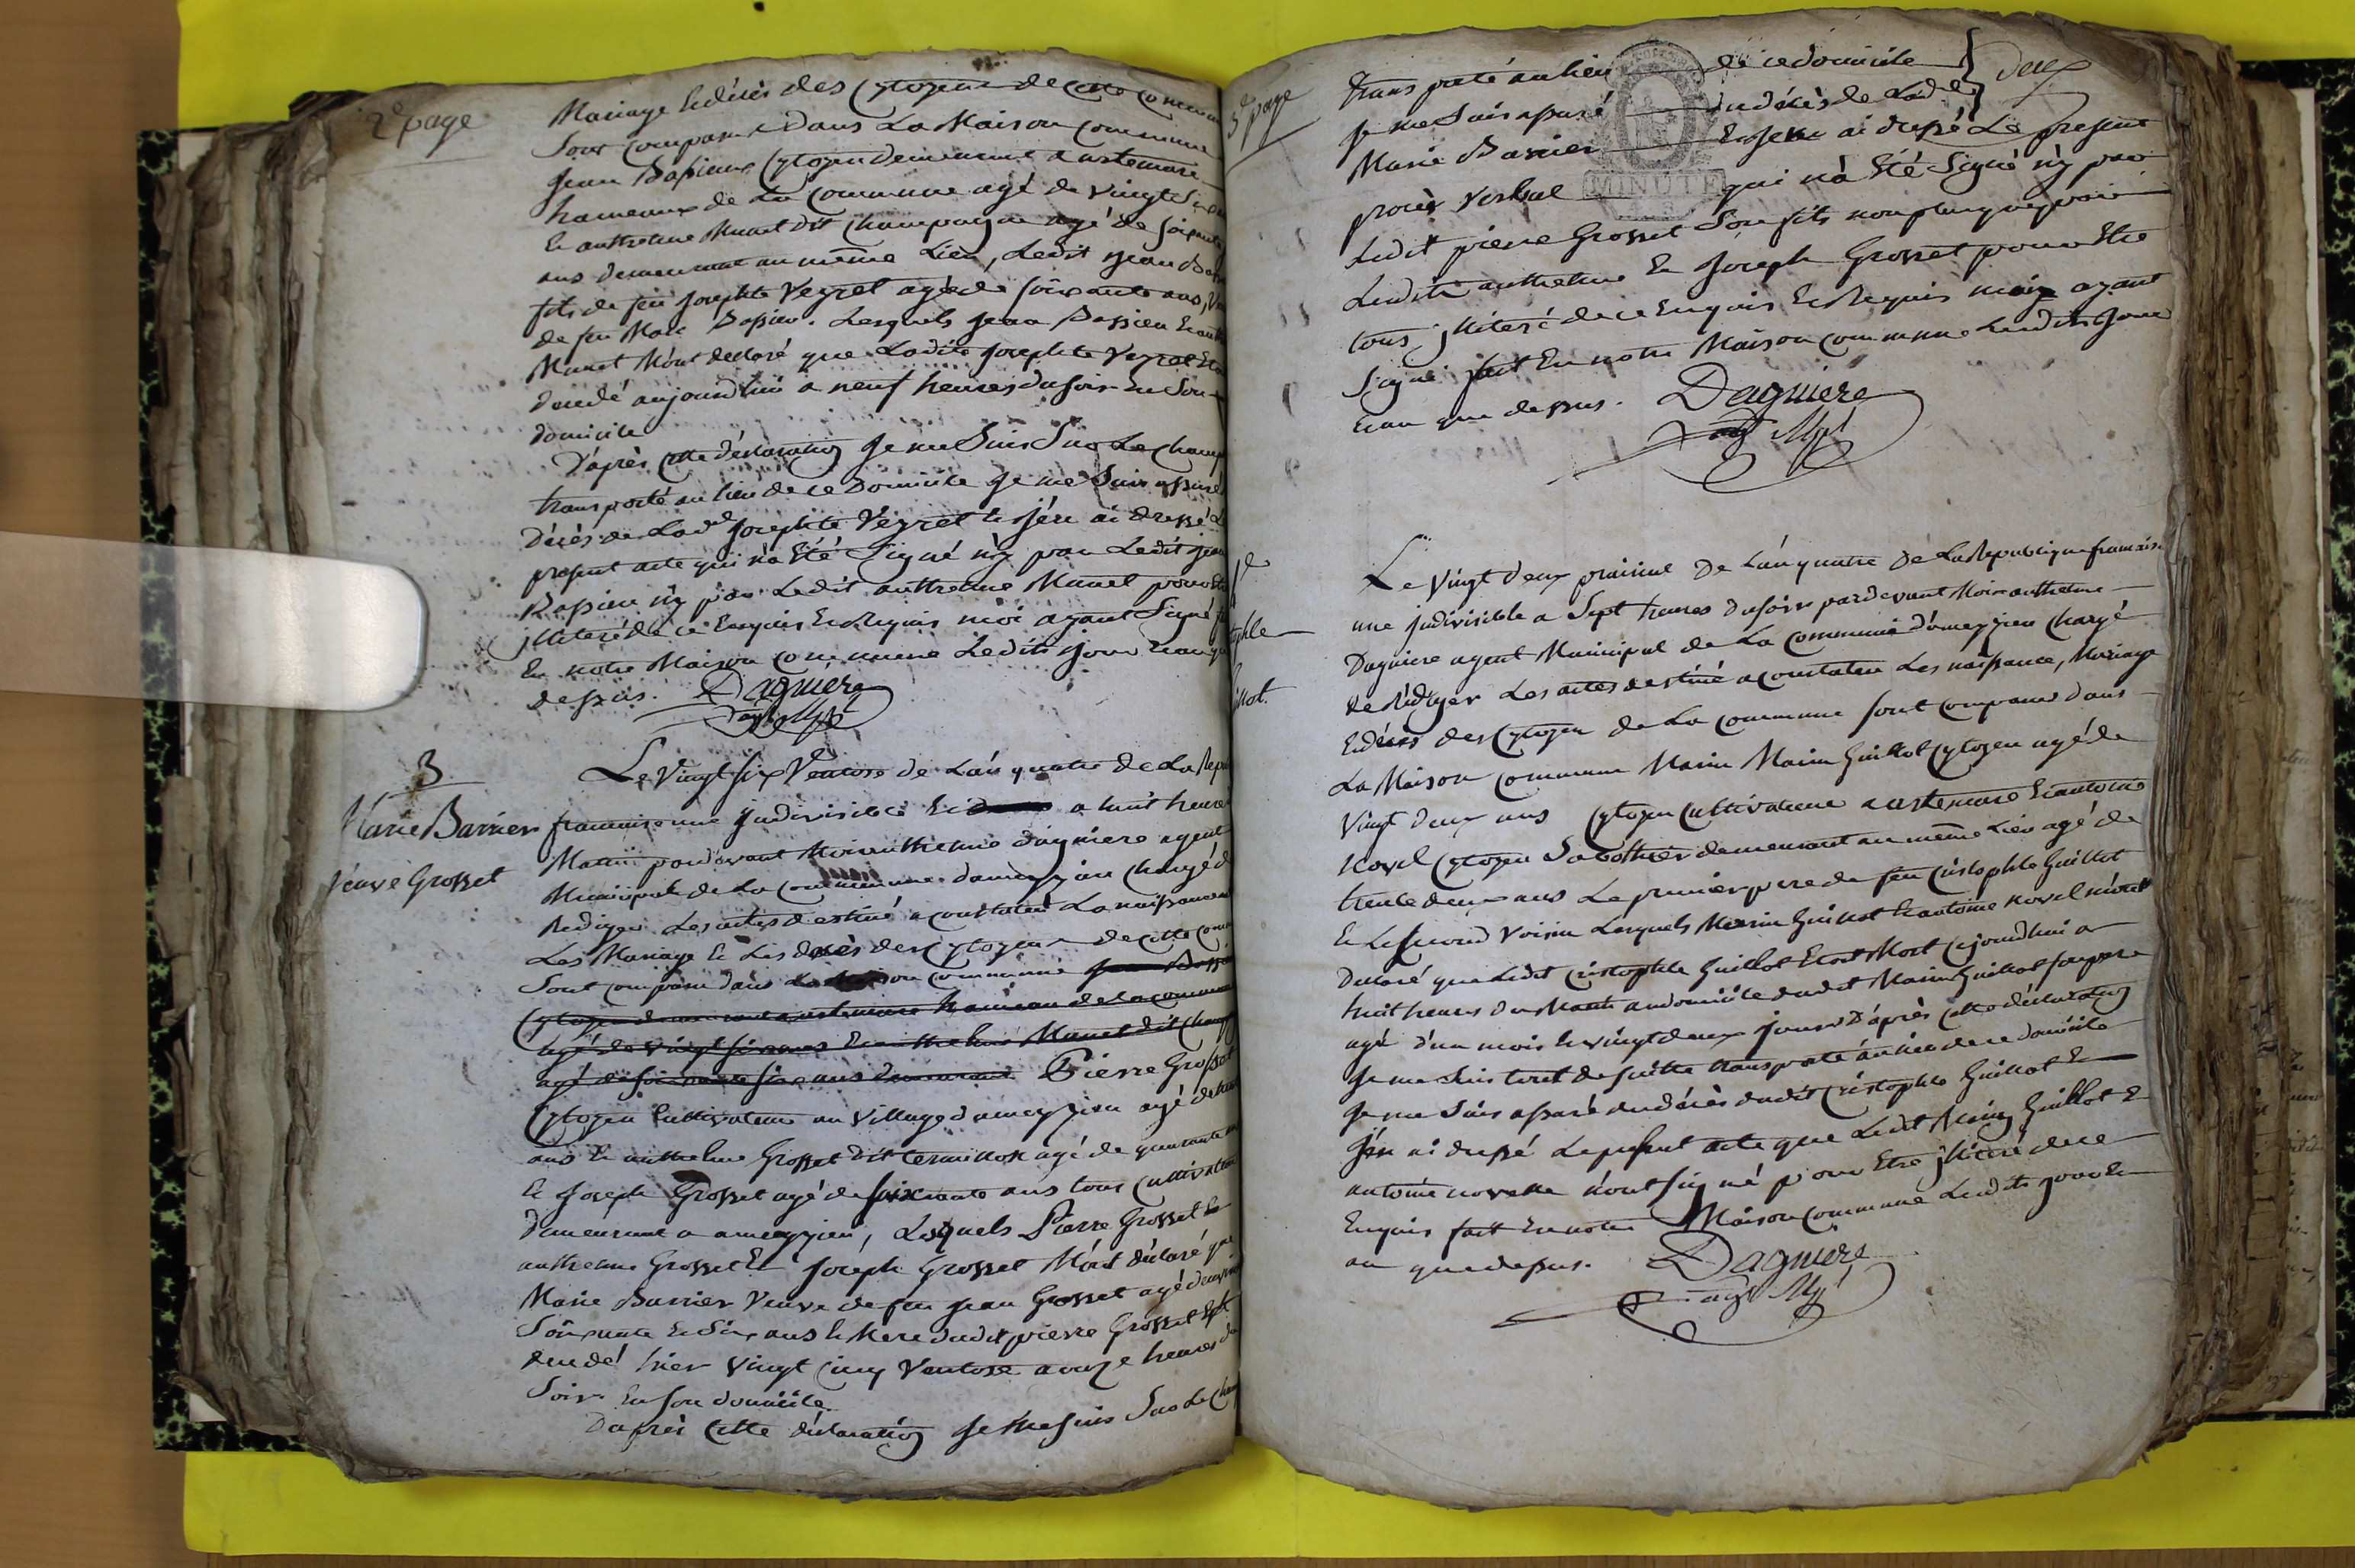 2e page
Mariage et décès des Cytoyens de cette commu
Sont comparus dans La Maison commune
Jean Bassieux Cytoyen demeurant a
hameaux de La commune agé de vingt Six
Et anthelme Munet dit Champagne agé de soixante
ans demeurant au même Lieu, Ledit Jean
fils de feu Josephte Veyret agée de soixante ans,
de feu Marc Bassieu. Lesquels Jean Bassieu Et
Munet M'ont declaré que Ladite Josephte Veyret
decedé aujourdhui a neuf heures du soir En Son
domicile
D'après cette déclaration Je me Suis Sur Le Champ
transporté au lieu de ce Domicile Je me Suis assuré
Décès de Lade Josephte Veyret Et J'en ai dressé L
present acte qui n'a Eté Signé n'y par Ledit Jean
Bassieu n'y par Ledit anthelme Munet pour
jlliteré de ce Enquis Et Requis moi ayant Signé
En notre Maison commune Ledits Jour Et an
dessus. Dagniere
agt Mpl
3
Marie Barrier
veuve Grosset
Le Vingt Six Ventose de L'an quatre de La Repu
francaise une jndivisible a huit heures
Matin pardevant Moi anthelme dagniere agent
Municipal de La commune dameyzieu chargé d
Rediger Les actes destiné a constater La naissance
Les Mariage Et Les décès des Cytoyens de cette com
Sont comparu dans La Maison commune Jean Bassi
Cytoyen demeurant a hameau de La commune
agé de vingt six ans Et anthelme Munet dit Champ
agé de soixante six ans demeurant Pierre Grosset
Cytoyen Cultivateur au Village dameyzieu agé de
ans Et anthelme Grosset dit agé de quarante
Et Joseph Grosset agé de soixante ans tous Cultivateur
demeurant a ameyzieu, Lesquels Pierre Grosset Et
anthelme Grosset Et Joseph Grosset M'ont déclaré que
Marie Barrier Veuve de feu Jean Grosset agé d'environ
Soixante Et Six ans Et Mere dudit pierre Grosset Est
decedé hier vingt Cinq Ventose a onze heures du
Soir En son domicile
D'après Cette déclaration Je me suis Sur Le Champ
3e page
transporté au lieu de ce domicile
Je me Suis assuré du décès de Lade
Marie Barrier Et J'en ai dressé Le present
procès verbal qui n'a Eté Signé n'y par
MINUTE
Ledit pierre Grosset Son fils non plus que par
Lesdits anthelme Et Joseph Grosset pour Etre
tous jlliteré de ce Enquis Et Requis moi ayant
Signé fait En notre Maison commune Lesdits Jour
Et an que dessus. Dagniere
agt Mpl
Le Vingt deux prairial De L'an quatre De La Republique francaise
une jndivisible a Sept heures du soir pardevant Moi anthelme
Dagniere agent Municipal de La Commune d'ameyzieu Chargé
de Rédiger Les actes destiné a constater Les naissance, Mariage
Et décès des Cytoyen de La Commune sont comparus dans
La Maison commune Marin Guillot Cytoyen agé de
vingt deux ans Cytoyen Cultivateur a Et antoine
Novel Cytoyen demeurant au même Lieu agé de
trente deux ans Le premier pere de feu Cristophle Guillot
Et Le Second Voisin Lesquels Marin Guillot Et antoine Novel m'ont
Declaré que Ledit Cristophle Guillot Etoit Mort Cejourdhui a
huit heures du Matin au domicile dudit Marin Guillot Son pere
agé d'un mois Et vingt deux jours D'après Cette déclaration
Je me Suis tout de suitte transporté au lieu de ce domicile
Je me Suis assuré du décès dudit Cristophle Guillot Et
J'en ai dressé Le present acte que Ledit Marin Guillot Et
antoine n'ont signé pour Etre jlliteré de ce
Enquis fait En notre Maison commune Lesdits jour Et
an que dessus. Dagniere
agt Mpl